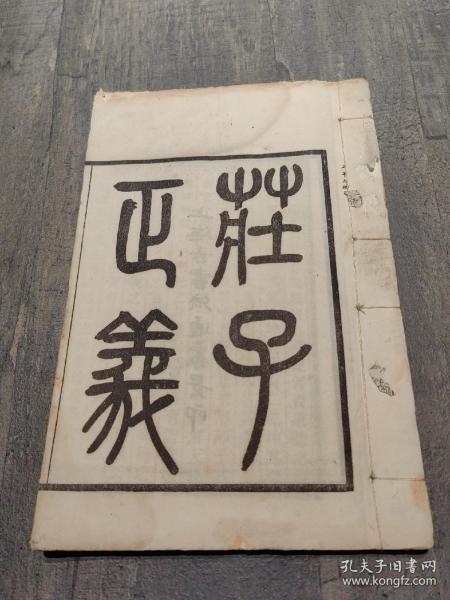 莊子
正義
孔夫子旧书网
www.kongfz.com